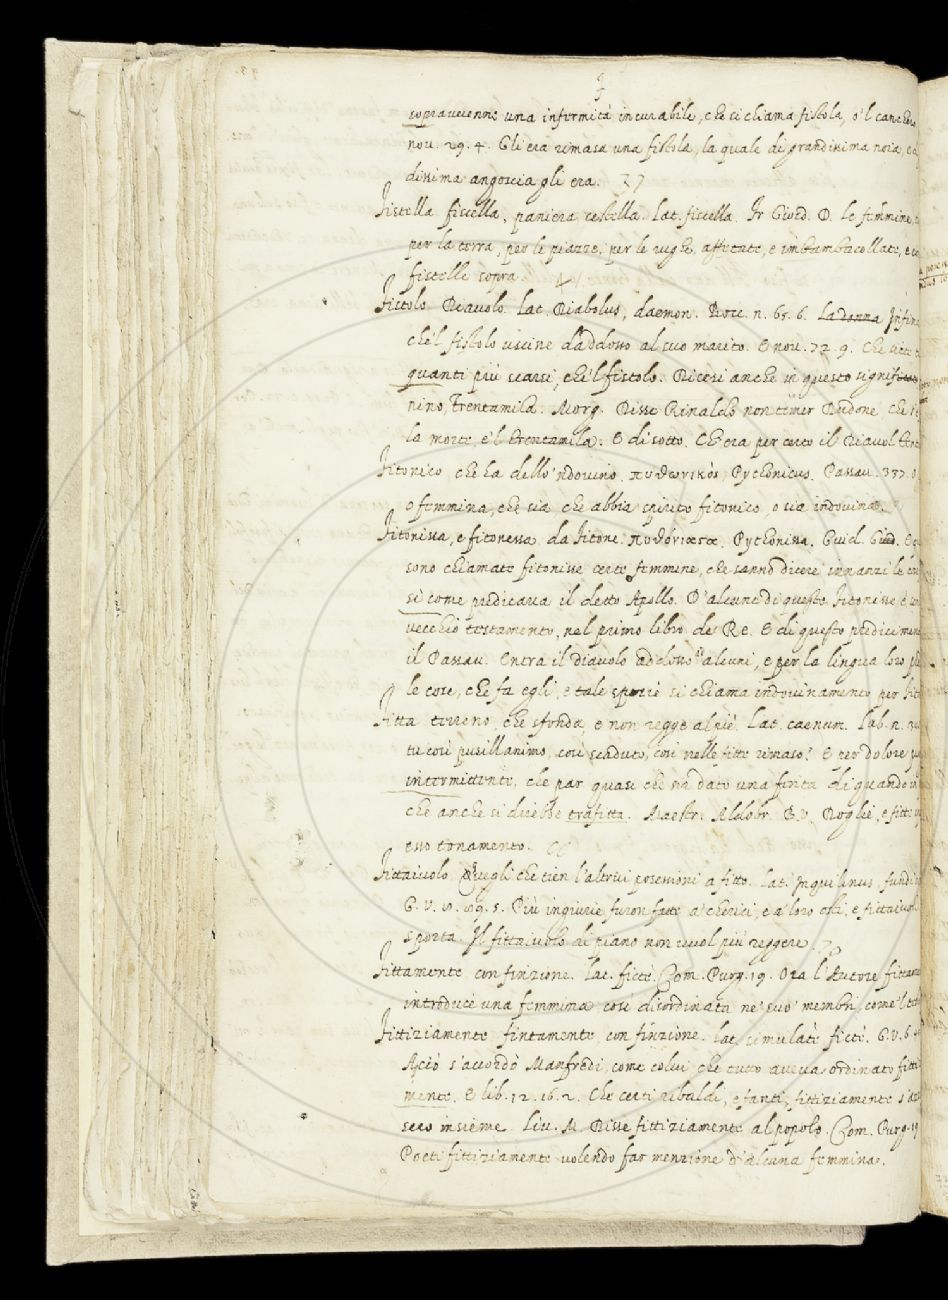 F
sopravvenne una infermità incurabile, che si chiama fistola, o 'l canchero
nov. 29. 4. Gli era rimasa una fistola, la quale di grandissima noia, e
dissima angoscia gli era.
Fistella fiscella, paniera cestella. Lat. fiscella. Fr Giord. D. Le femmine,
per la terra, per le piazze, per le vighe affettate, e imbambacollate, e co
fistelle sopra.
Fistolo Diavolo. Lat. Diabolus, daemon. Bocc. n. 65. 6. La donna
che'l fistolo uscisse d'addosso al suo marito. E nov. 72. 9. Che siete
quanti più scarsi, che'l fistolo. Dicesi anche in questo
nino, Trentamila. Morg. Disse Rinaldo non temer Dudone che
la morte, e'l trentamila. E di sotto. Ch'era per certo il Diavol
Fitonico, che ha dello 'ndovino. πυθωνικὸς Pythonicus. Passav. 337. O
o femmina, che sia che abbia spirito fitonico, o sia indovina.
Fitonissa, e fitonessa da Fitone. Pythonissa. Guid. G. E
sono chiamate fitonisse certe femmine, che sanno dicere innanzi le
sì come predicava il detto Apollo. D'alcune di queste fitonisse è
vecchio testamento, nel primo libro de' Re. E di questo predicimento
il Passav. Entra il diavolo addosso ad alcuni, e per la lingua loro
le cose, che fa egli, e tale spezie si chiama indovinamento per
Fitta terreno che sfonda, e non regge al piè. Lat. caenum. Lab. n.
tu così pusillanimo, così scaduto, così nelle fitte rimaso? E per dolore
intermittente, che par quasi che sia dato una finta di quando in
che anche si direbbe trafitta. Maestr. Aldobr. B. V. Doglie, e fitte
esso tonamento.
Fittaiuolo Quegli che tien l'altrui possessioni a fitto. Lat. Inquilinus,
G. V. 89. 5. Più ingiurie furon fatte a' cherici, e a' loro osti, e fittaiuoli
sporta. Il fittaiuolo di piano non vuol più reggere.
Fittamente con finzione. Lat. fictè. Com. Purg. 19. Ora l'Autore fittamente
introduce una femmina così disordinata ne' suo' membri, come 'l
Fittiziamente fintamente con finzione. Lat. simulatè fictè. G. V. 6.
Acciò s'accordò Manfredi, come colui che tutto aveva ordinato fitti
mente. E lib. 12. 16. 2. Che certi ribaldi, e fanti, fittiziamente
seco insieme Liv. M. Disse fittiziamente al popolo. Com. Purg. 19
Poeti fittiziamente volendo far menzione d'alcuna femmina.